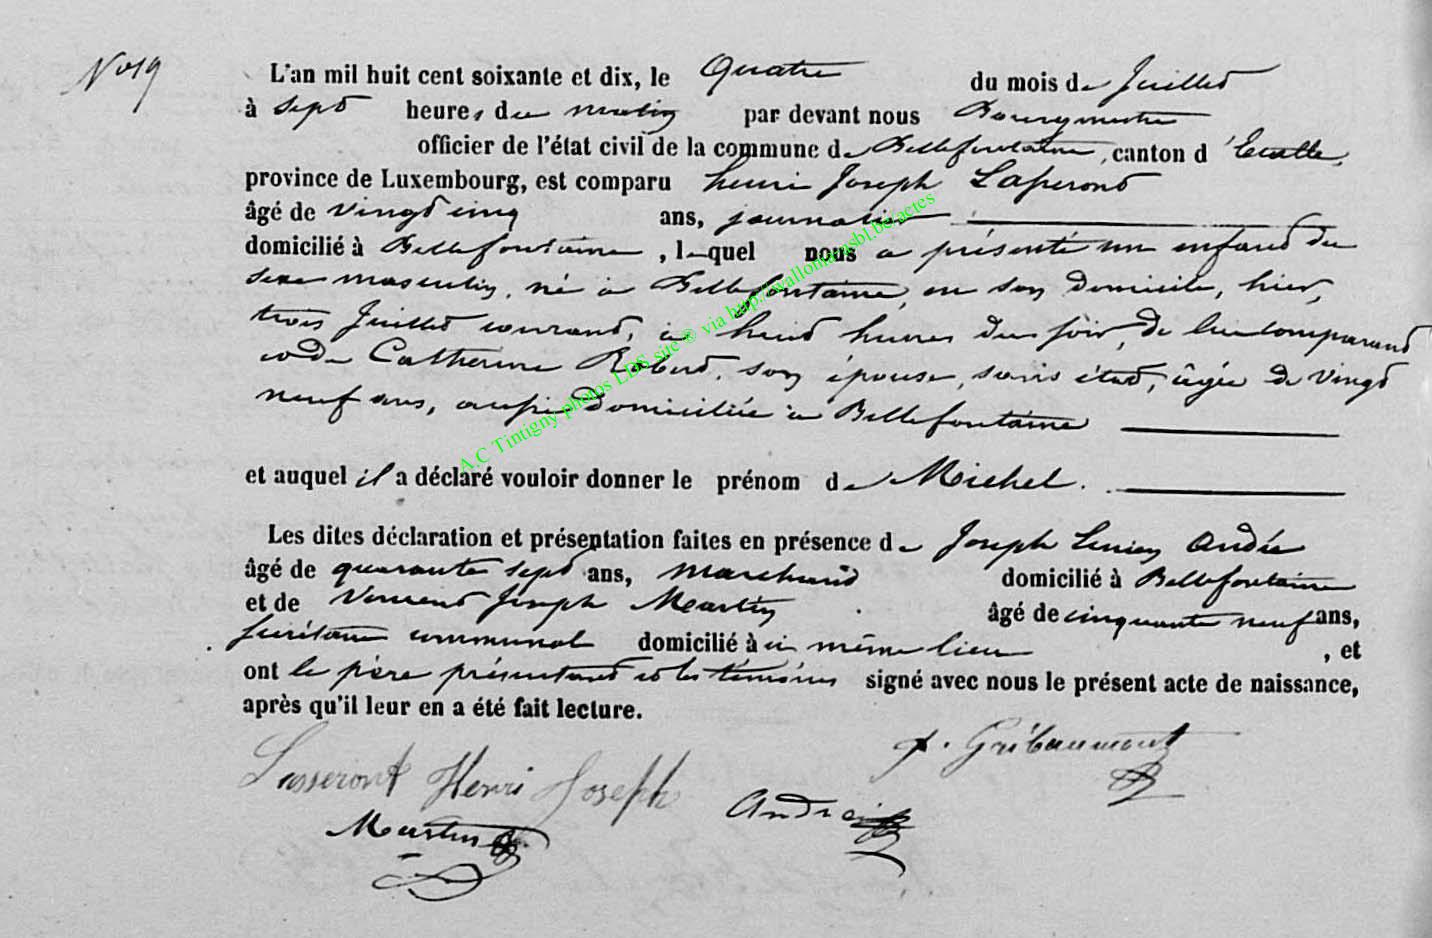 N° 19
L'an mil huit cent soixante et dix, le Quatre du mois de Juillet
à sept heures du matin par devant nous Bourgmestre
officier de l'état civil de la commune de Bellefontaine, canton d'Etalle,
province de Luxembourg, est comparu henri Joseph Lasseront
âgé de vingt cinq ans, journalier
domicilié à Bellefontaine, lequel nous a présenté un enfant du
sexe masculin, né à Bellefontaine, en son domicile, hier,
trois Juillet courant, à huit heures du soir, de lui comparant
et de Catherine Robert, son épouse, sans état, âgée de vingt
neuf ans, aussi domiciliée à Bellefontaine
et auquel il a déclaré vouloir donner le prénom de Michel.
Les dites déclaration et présentation faites en présence de Joseph Lucien André
âgé de quarante sept ans, marchand domicilié à Bellefontaine
et de Vincent Joseph Martin âgé de cinquante neuf ans,
secrétaire communal domicilié à en même lieu, et
ont le père présentant et les témoins signé avec nous le présent acte de naissance,
après qu'il leur en a été fait lecture.
Lasseront Henri Joseph
Gribaumont
Martin
André
A.C Tintigny photos LDS site ® via http://wallonia-asbl.be/actes